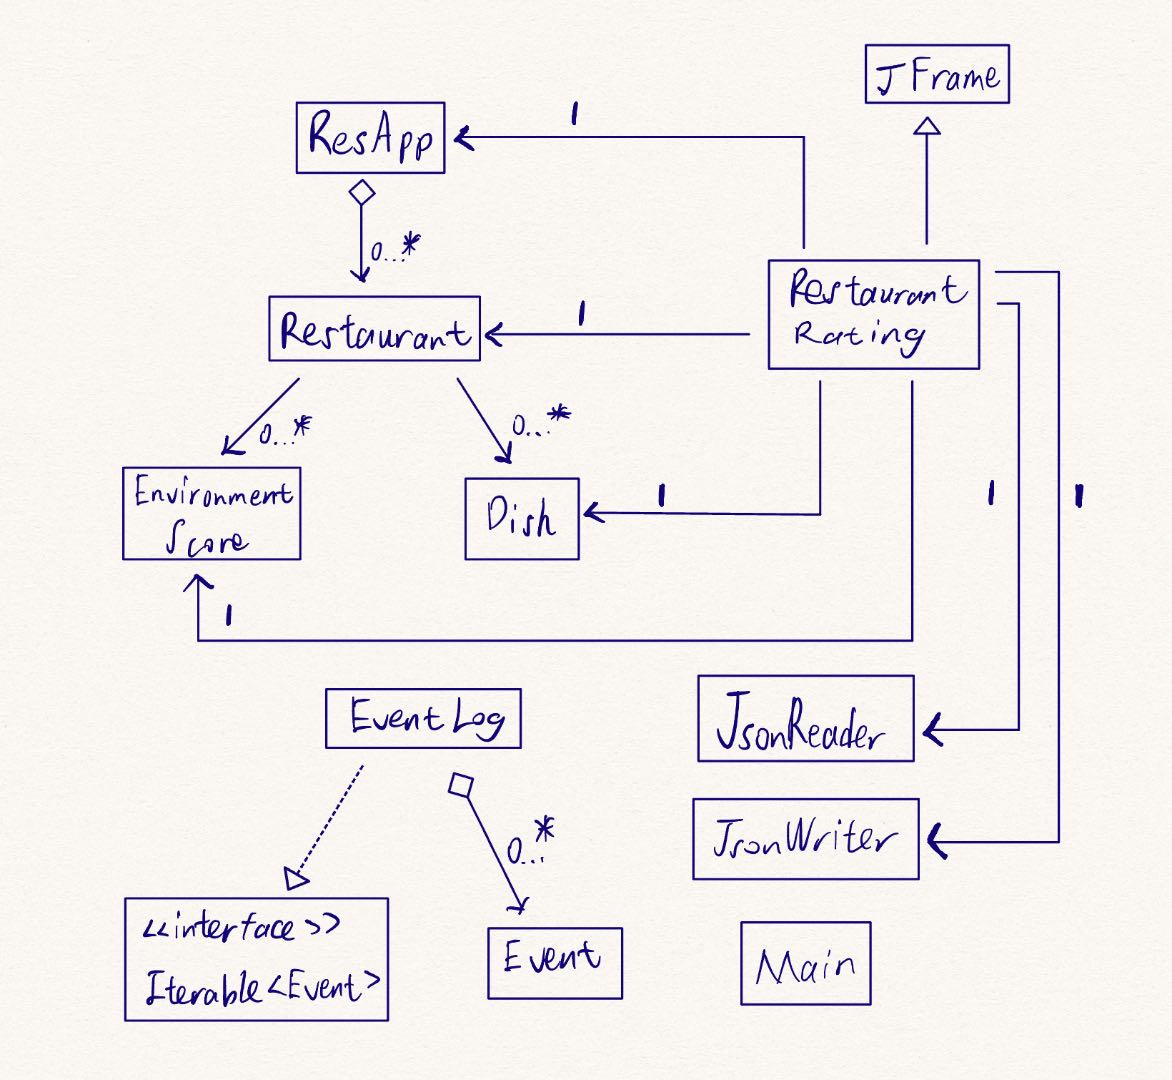 JFrame
ResApp
1
0...*
Restaurant
1
Restaurant
Rating
0...*
0...*
Environment
Score
Dish
1
1
1
1
EventLog
JsonReader
0...*
JsonWriter
<<interface>>
Iterable<Event>
Event
Main